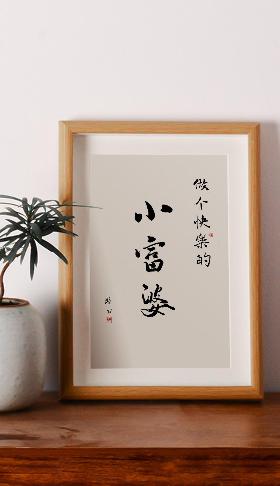 做个快乐的
小富婆